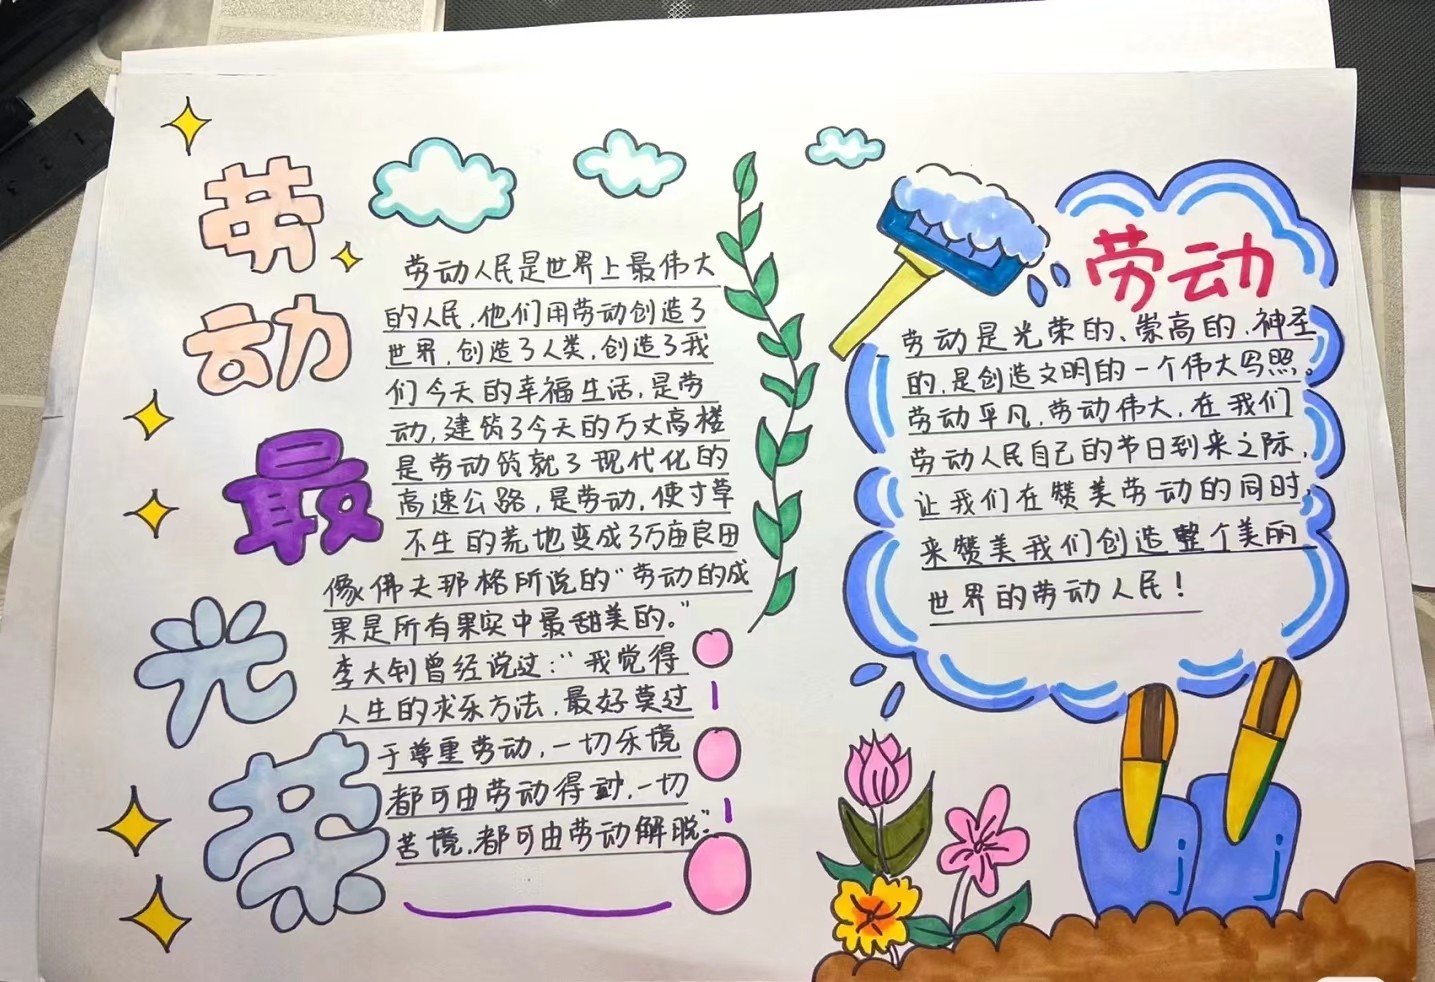 劳动最光荣
劳动人民是世界上最伟大
的人民，他们用劳动创造了
世界，创造了人类，创造了我
们今天的幸福生活，是劳
动，建筑了今天的万丈高楼
是劳动筑就了现代化的
高速公路，是劳动，使寸草
不生的荒地变成了万亩良田
像佛夫那格所说的"劳动的成
果是所有果实中最甜美的。"
李大钊曾经说过："我觉得
人生的求乐方法，最好莫过
于尊重劳动，一切乐境
都可由劳动得，一切
苦境，都可由劳动解脱。"
劳动
劳动是光荣的、崇高的，神圣
的，是创造文明的一个伟大写照。
劳动平凡，劳动伟大，在我们
劳动人民自己的节日到来之际，
让我们在赞美劳动的同时，
来赞美我们创造整个美丽
世界的劳动人民！